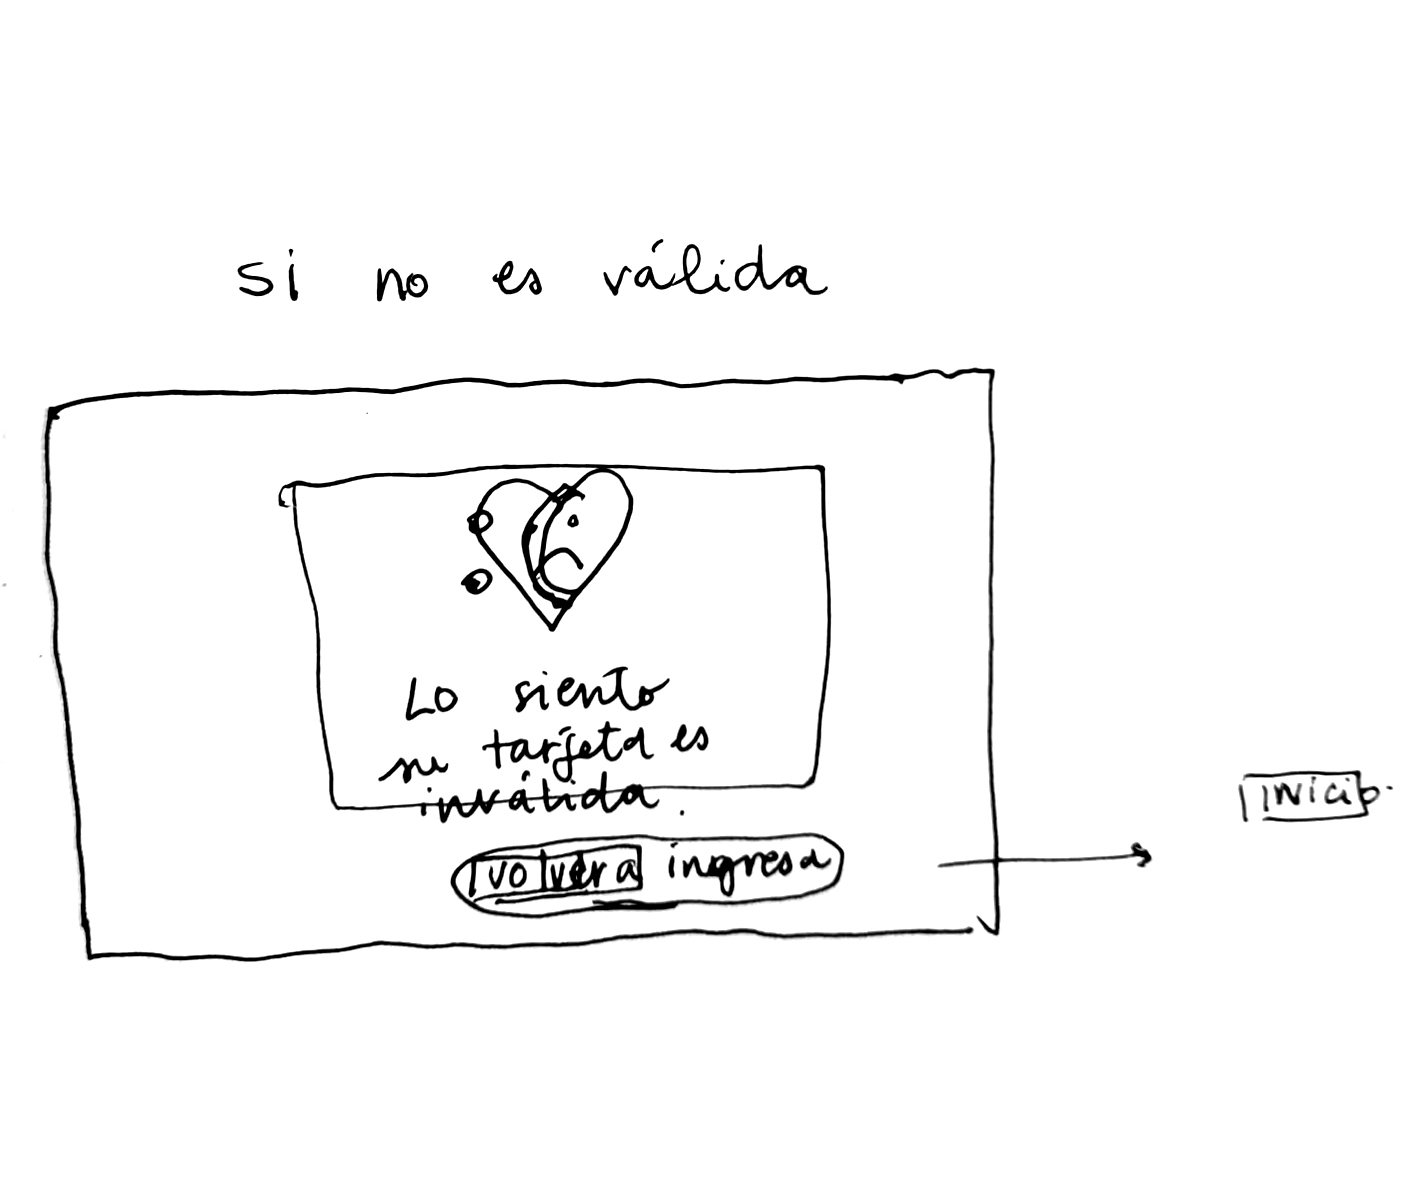 si no es válida
Lo siento
su tarjeta es
inválida.
volver a ingresa
inicio